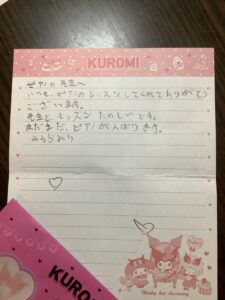 KUROMI
ピアノの先生へ
いつも、ピアノのレッスンしてくれてありがとう
ございます。
先生と、レッスン たのしいです。
まだまだ、ピアノがんばります。
みそらより
KUROMI